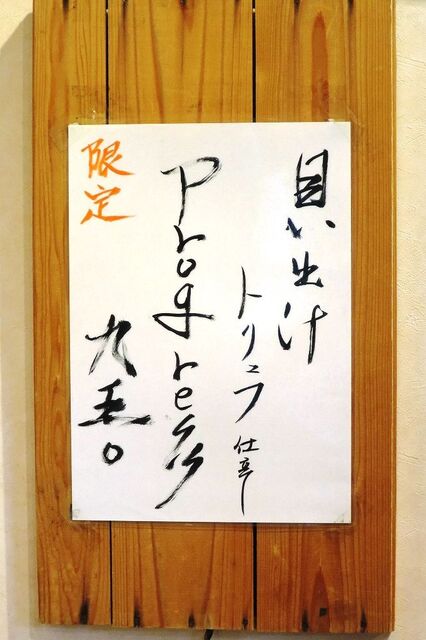 貝出汁
トリュフ仕立
Progress
限定
九五〇